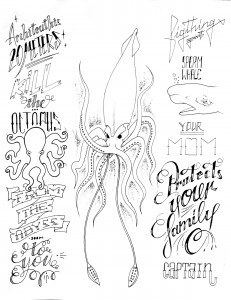 Architeuthis
20 METERS
KILL
the
OCTOPUS
FROM
THE
ABYSS
to
you
Figthing
against
SPERM
WHALE
YOUR
MOM
Protects
your
family
CAPTAIN